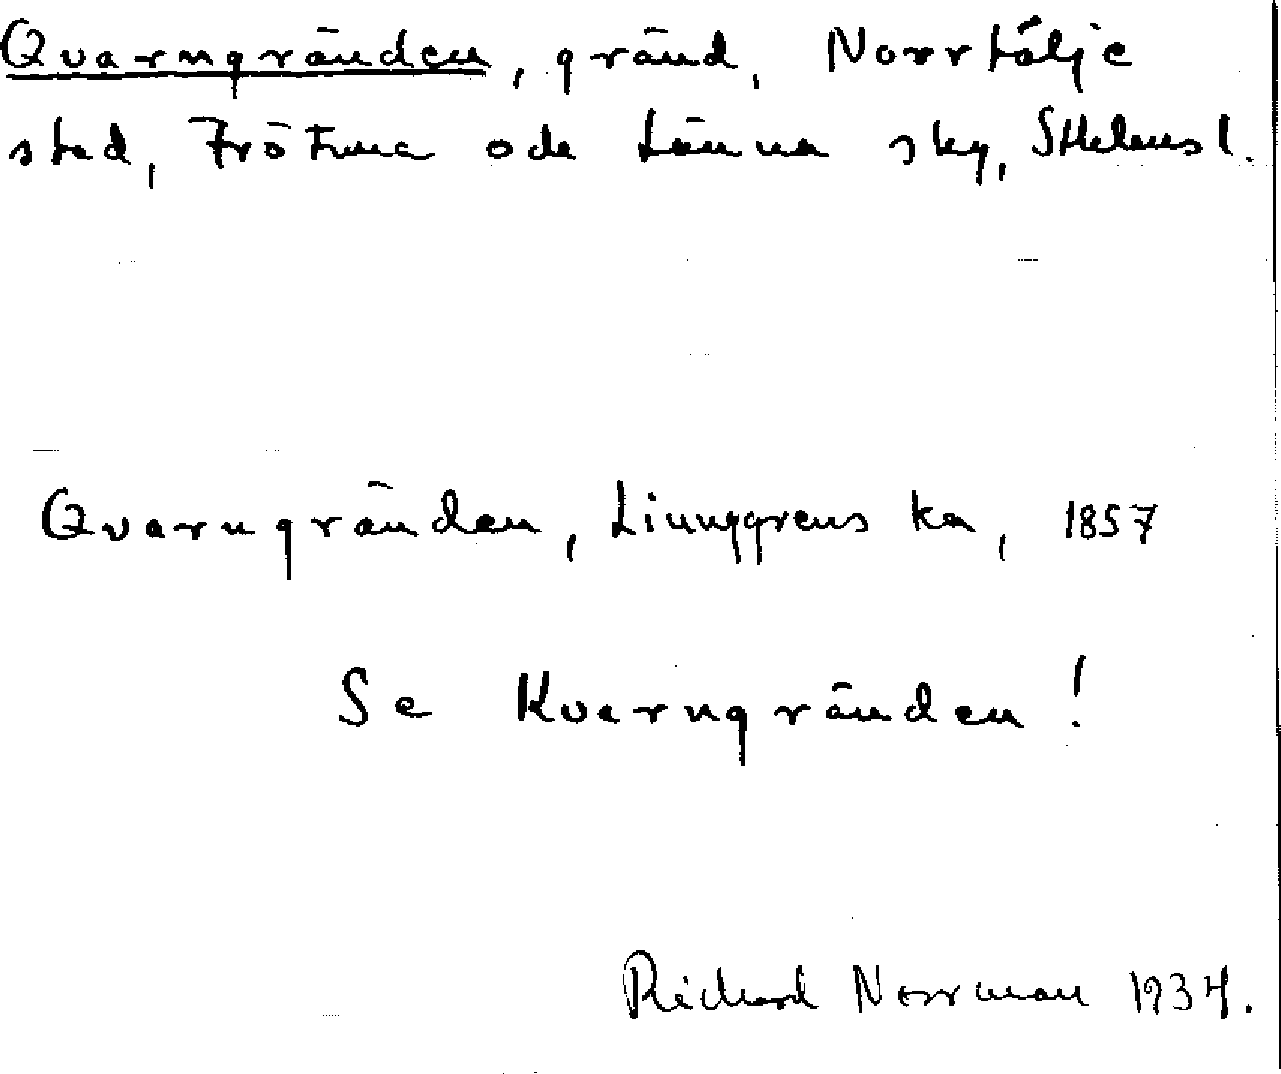 Qvarngränden, gränd, Norrtälje
stad, Frötuna och Länna sky, Sthlms l.
Qvarngränden, Ljunggrens ka, 1857
Se Kvarngränden!
Richard Norrman 1934.